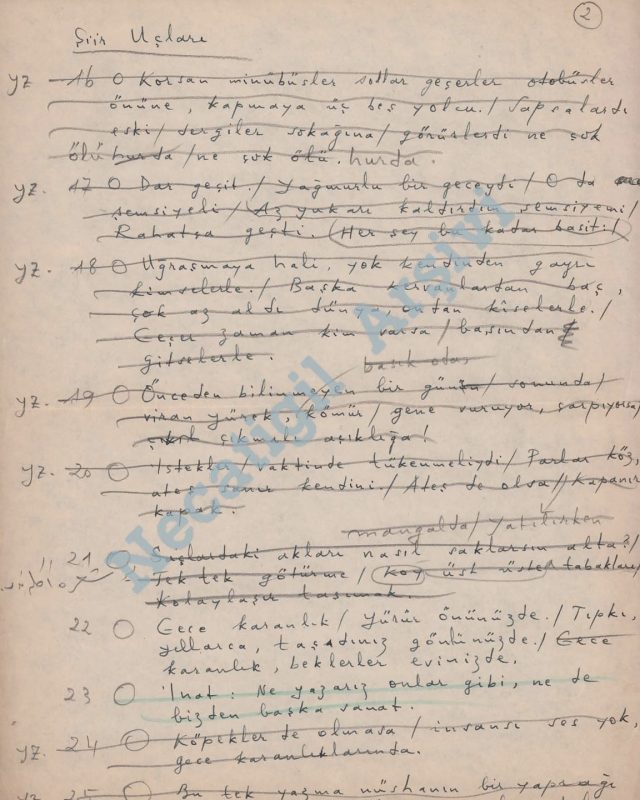 2
Şiir Uçları
yz 16 O Korsan minübüsler sollar geçerler otobüsler
önüne, kapmaya üç beş yolcu./ Sapsalardı
eski/ dergiler sokağına/ görürlerdi ne çok
ölü hurda/ ne çok ölü. hurda.
yz. 17 O Dar geçit./ Yağmurlu bir geceydi/ O da
şemsiyeli/ Az yukarı kaldırdın şemsiyeni/
Rahatça geçti. (Her şey bu kadar basit!)
yz. 18 O Uğraşmaya hali, yok kendinden gayrı
kimselerle./ Başka kervanlardan baç,
çok az aldı dünya, ondan kîselerle./
Gece zaman kim varsa/ başından
gitselerle.
basık oda
yz. 19 O Önceden bilinmeyen bir günün/ sonunda/
viran yürek, kömür/ gene vuruyor, çarpıyorsa/
çıkmalı açıklığa!
yz. 20 O İstekler/ vaktinde tükenmeliydi/ Parlar köz,
ateş sanır kendini./ Ateş de olsa// Kapanır
kapak.
mangalda/ yatılırken
21 O Saçlardaki akları nasıl saklarsın alta?/
Tek tek götürme/ Koy üst üste/ tabakları/
Kolaylaşır taşımak.
22 O Gece karanlık/ Yürür önünüzde./ Tıpkı,
yıllarca, taşıdınız gönlünüzde./ Gece
karanlık, beklerler evinizde.
23 O İnat: Ne yazarız onlar gibi, ne de
bizden başka sanat.
yz. 24 O Köpekler de olmasa/ insansı ses yok,
gece karanlıklarında.
yz 25 O Bu tek yazma nüshanın bir yaprağı
Necatigil Arşivi